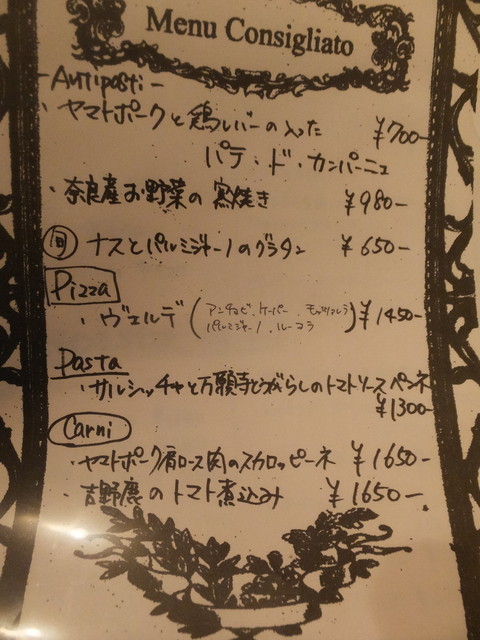 Menu Consigliato
-Antipasti-
・ヤマトポークと鶏レバーの入った ¥700-
パテ・ド・カンパーニュ
・奈良産お野菜の窯焼き ¥980-
旬 ナスとパルミジャーノのグラタン ¥650-
Pizza
・ヴェルデ(アンチョビ、ケーパー モッツァレラ ¥1450-
パルミジャーノ、ルーコラ)
Pasta
・サルシッチャと万願寺とうがらしのトマトソースペンネ
¥1300-
Carni
・ヤマトポーク肩ロース肉のスカロッピーネ ¥1650-
・吉野鹿のトマト煮込み ¥1650-